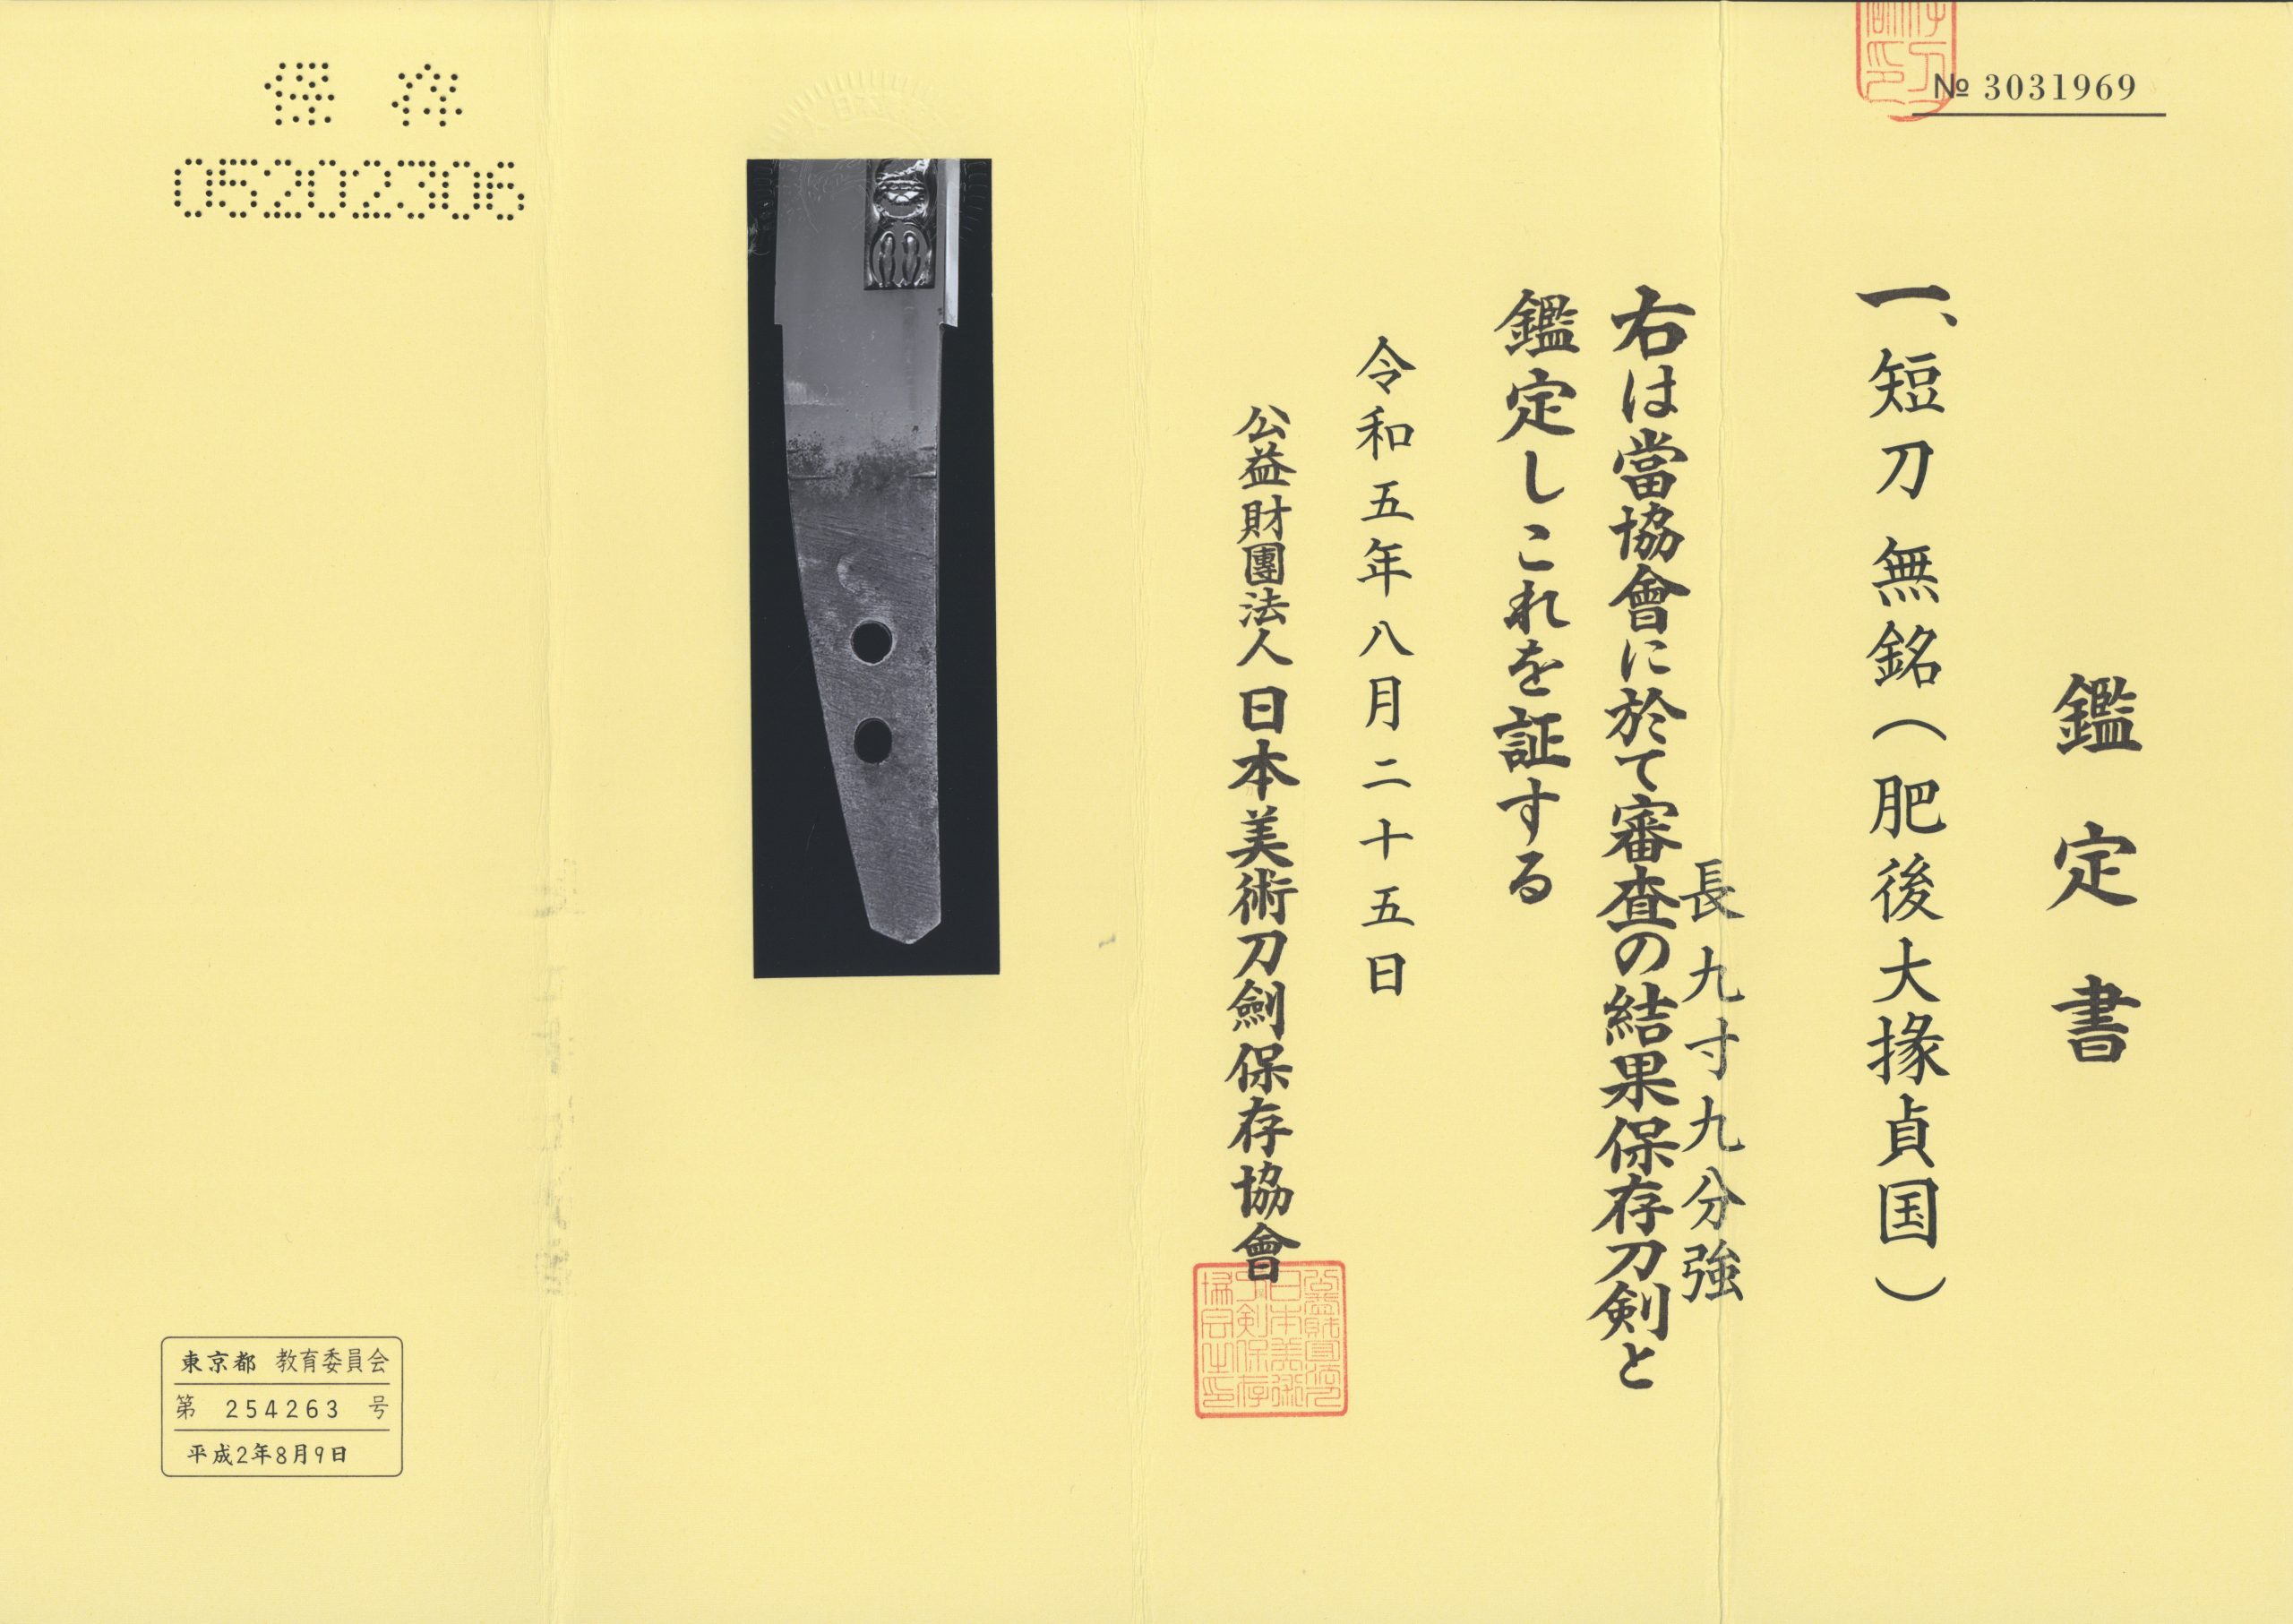 № 3031969
鑑定書
一、短刀 無銘（肥後大掾貞国）
長九寸九分強
右は當協會に於て審査の結果保存刀剣と
鑑定しこれを証する
令和五年八月二十五日
公益財團法人 日本美術刀劍保存協會
保存
05202306
東京都 教育委員会
第 254263 号
平成2年8月9日